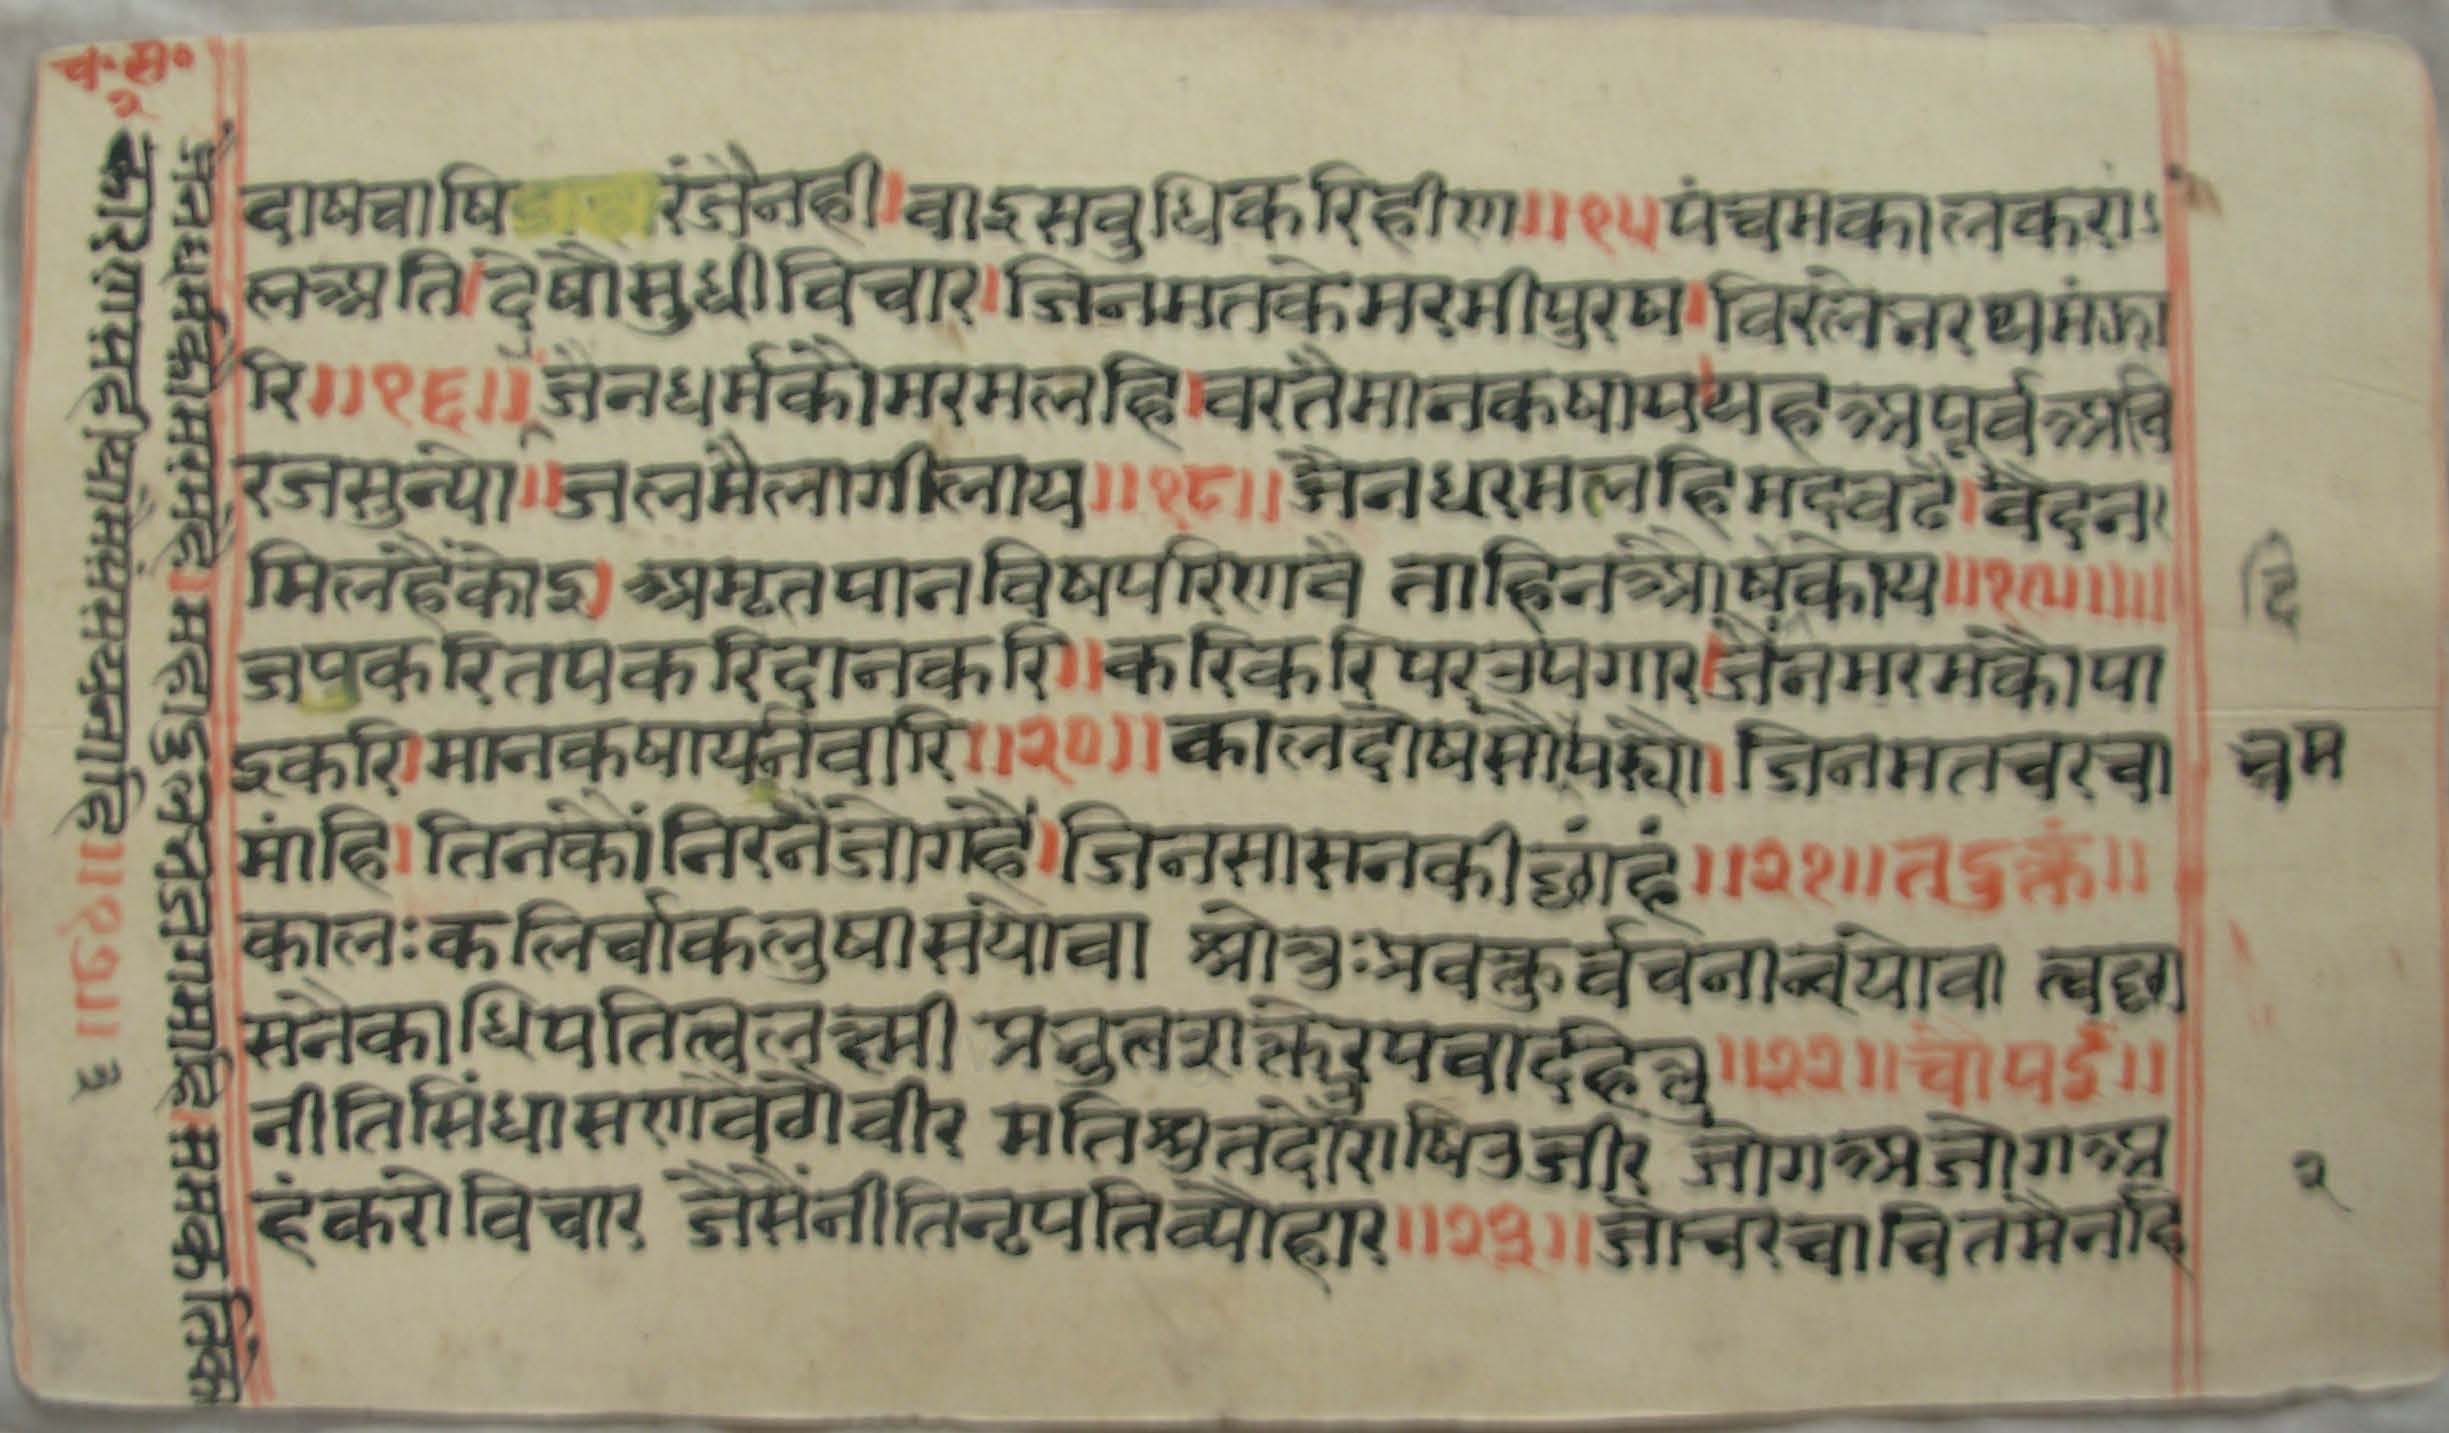 च॰स॰
२
दाषचाषि रंजैनही।वाइसवुधिकरिहीण॥१५पंचमकालकरा
लअति।देषौसुधीविचार।जिनमतकेमरमीपुरष।विरलेनरथमंझा
रि॥१६॥जैनधर्मकौमरमलहि।वरतैमानकषाय।यहअपूर्वअवि
रजसुन्यो॥जलमैलागीलाय॥१८॥जैनधरमलहिमदवढै।वैदन
मिलहैकोइ।अमृतपानविषपरिणवै ताहिनऔषंकोय॥१९॥॥
जपकरितपकरिदानकरि॥करिकरिपरउपगार।जैनमरमकौपा
इकरि।मानकषायनिवारि॥२०॥कालदोषसौपस्यो।जिनमतचरचा
मांहि।तिनकौंनिरनैजोगहै।जिनसासनकीछांहं॥२१॥तदुक्तं॥
कालःकलिर्वाकलुषासयोवा श्रोतुःप्रवक्तुर्वचनान्वयोवा त्वछा
सनैकाधिपतित्वलक्ष्मी प्रभुत्वशक्तेरपवादहेतु॥२२॥चौपई॥
नीतिसिंघासणवैठौवीर मतिश्रुतदोराषिउजीर जोगअजोगअ
हंकरोविचार जैसैंनीतिनृपतिव्यौहार॥२३॥जोचरचाचितमैनहि
जैनधर्मकोमरमहे।महादुलभजगमांहि।समकितकौं
कारणभईयामेंसंसयनांहि॥१७॥ ३
त्रम
२